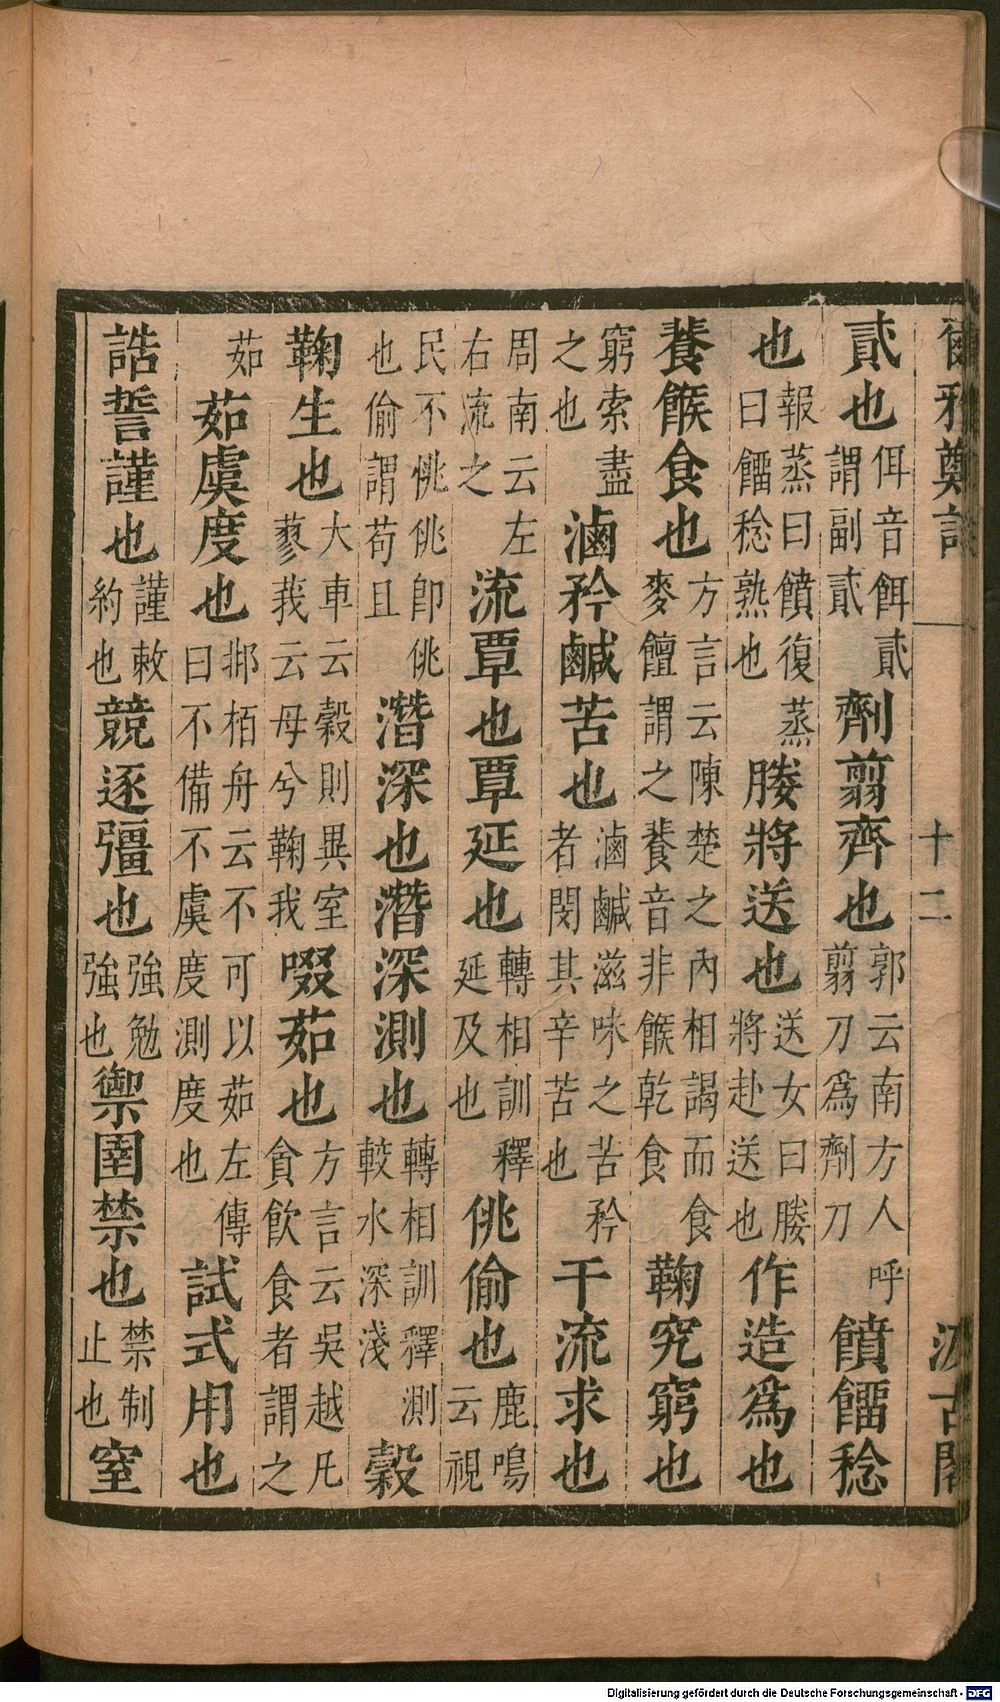 爾雅鄭註 十二 汲古閣
貳也佴音餌貳謂副貳劑翦齊也郭云南方人呼翦刀爲劑刀饙餾稔
也報蒸曰饙復蒸曰餾稔熟也媵將送也送女曰媵將赴送也作造爲也
餥餱食也方言云陳楚之內相謁而食麥饘謂之餥音非餱乾食鞫究窮也
窮索盡之也滷矜鹹苦也滷鹹滋味之苦矜者閔其辛苦也干流求也
周南云左右流之流覃也覃延也轉相訓釋延及也佻偷也鹿鳴云視
民不恌佻卽佻也偷謂苟且潛深也潛深測也轉相訓釋測較水深淺穀
鞫生也大車云穀則異室蓼莪云母兮鞫我啜茹也方言云吳越凡貪飮食者謂之
茹茹虞度也邶栢舟云不可以茹左傳曰不備不虞度測度也試式用也
誥誓謹也謹敕約也競逐彊也強勉強也禦圉禁也禁制止也窒
Digitalisierung gefördert durch die Deutsche Forschungsgemeinschaft - DFG